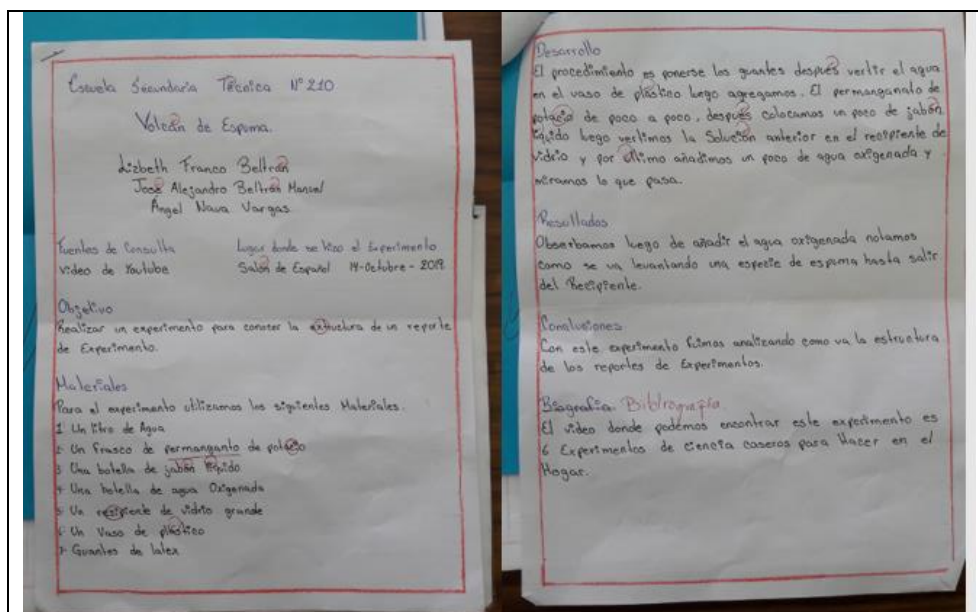 Escuela Secundaria Técnica Nº 210
Volcán de Espuma.
Lizbeth Franco Beltrán
José Alejandro Beltrán Manuel
Ángel Nava Vargas
Fuentes de Consulta
Lugar donde se hizo el Experimento
Video de Youtube
Salón de Español 14-Octubre-2019
Objetivo
Realizar un experimento para conocer la extructura de un reporte
de Experimento.
Materiales
Para el experimento utilizamos los siguientes Materiales.
1- Un litro de Agua
2- Un Frasco de permanganto de potacio
3- Una botella de jabón líquido
4- Una botella de agua Oxigenada
5- Un resipiente de vidrio grande
6- Un Vaso de plástico
7- Guantes de latex
Desarrollo
El procedimiento es ponerse los guantes después vertir el agua
en el vaso de plástico luego agregamos. El permanganato de
potacio de poco a poco, después colocamos un poco de jabón
líquido luego vertimos la Solución anterior en el recipiente de
vidrio y por último añadimos un poco de agua oxigenada y
miramos lo que pasa.
Resultados
Obserbamos luego de añadir el agua oxigenada notamos
como se va levantando una especie de espuma hasta salir
del Recipiente.
Conclusiones
Con este experimento fuimos analizando como va la estructura
de los reportes de Experimentos.
Biografia Bibliografía
El video donde podemos encontrar este experimento es
6 Experimentos de ciencia caseros para Hacer en el
Hogar.